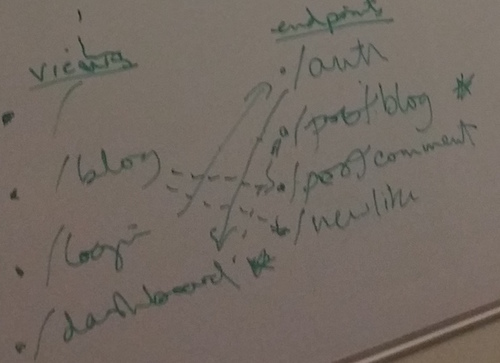 views
/
/blog
/login
/dashboard *
endpoints
/auth
/postblog *
/postcomment
/newlike